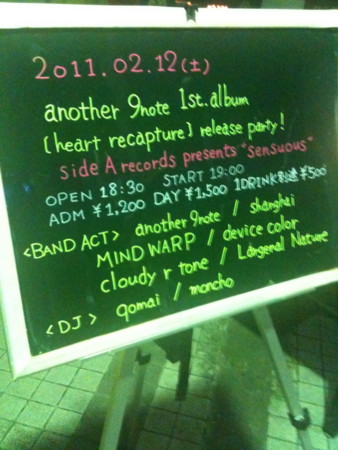 2011.02.12(土)
another 9note 1st.album
[heart recapture] release party!
side A records presents "sensuous"
OPEN 18:30 START 19:00
ADM ¥1,200 DAY ¥1,500 1DRINK別途¥500
<BAND ACT> another 9note / shanghai
MIND WARP / device color
cloudy r tone / Längenal Nature
<DJ> qomai / moncho